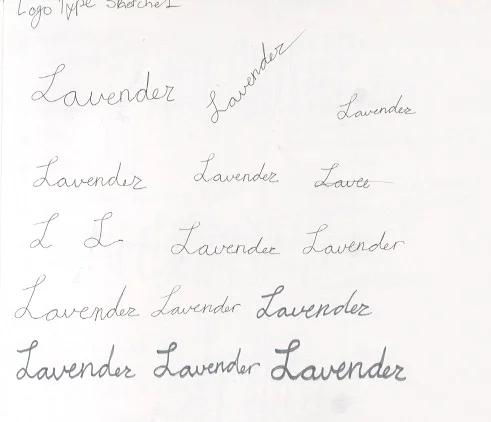 Logo Type Sketches
Lavender Lavender Lavender
Lavender Lavender Lavee
L L Lavender Lavender
Lavender Lavender Lavender
Lavender Lavender Lavender